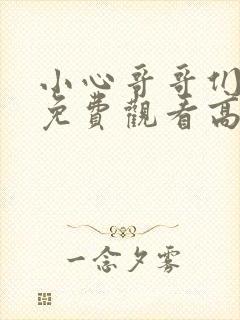 小心哥哥们
免費觀看高
一念夕雾